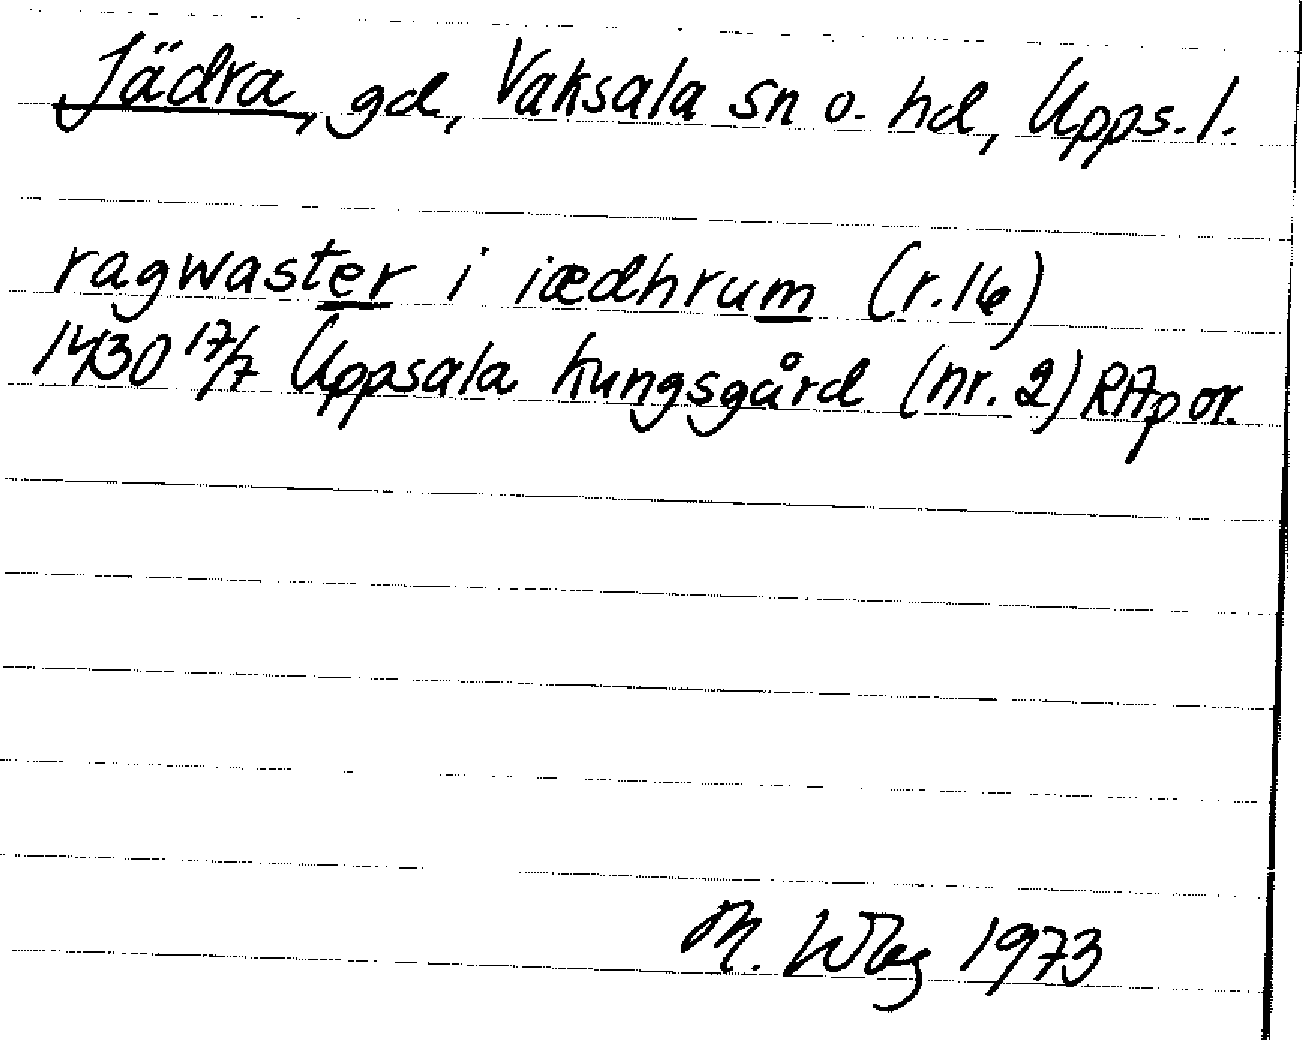 Jädra, gd, Vaksala sn o. hd, Upps. l.
ragwaster i iædhrum (r. 16)
1430 17/7 Uppsala kungsgård (nr. 2) RAp or.
M. 1973